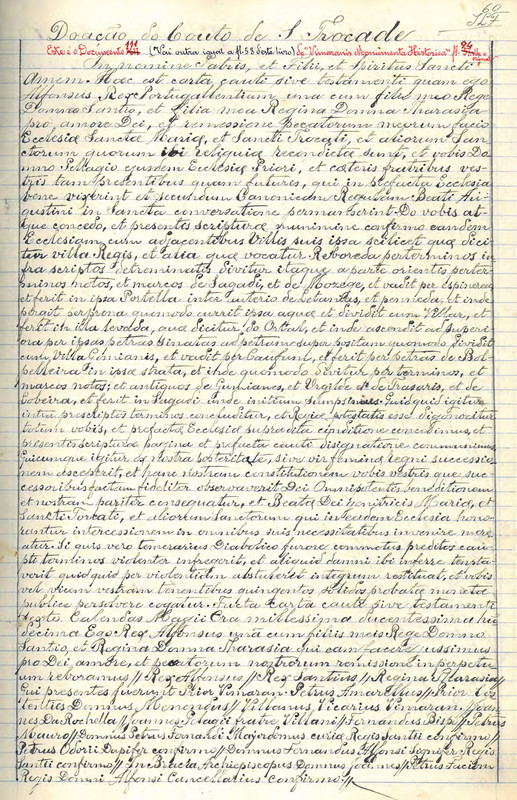 60
Doação do Couto de S. Trocade
Este é o Documento 111 (Vai outra igual a fl. 58 deste livro) do "Vimaranis Monumenta Historica" fl. 94
In nomine Patris, et Filii, et Spiritus Sancti
Amem. Hoc est carta cauti sive testamenti quam ego
Alfonsus Rex Portugallentium una cum filiis meo Rege
Domno Santio, et Filia mea Regina Donna Tharasia
pro amore Dei, et remessione Pecatorum meorum facio
Ecclesiæ Sanctæ Mariæ, et Sancti Trocati, et aliorum San-
ctorum quorum ibi reliquiæ reconditæ sunt, et vobis Do-
mno Pellagio ejusdem Ecclesiæ Priori, et cæteris fratribus ves-
tris tam presentibus quam futuris, qui in prefacta Ecclesia
bene vixerint et secundum Canonicam Regulam Beati Au-
gustini in Sancta conversatione permanserint. Do vobis at-
que concedo, et presentis scripturæ munimine confirmo eamdem
Ecclesiam cum adjacentibus Villis suis ipsa scilicet quæ dici-
tur villa Regis, et alia quæ vocatur Reboreda per terminos in-
fra scriptos determinatis. Dividitur itaque a parte orientis per ter-
minos notos, et marcos de Sagadi, et de Mozege, et vadit per espinerea
et ferit in ipsa Portella inter et penneda, et inde
per prona quomodo currit ipsa aqua et dividit cum Villar, et
ferit in illa levada, qua dicitur do Ortal, et inde ascendit ad superi-
ora per ipsas petras sinatas ad petram super positam quomodo dividit
cum Villa Comianis, et vadit per et ferit per petras de
in ipsa strata, et inde quomodo dividitur per terminos, et
marcos notos, et antiquos de Gumianes, et de Trasaris, et de
Lobeira, et ferit in Sagadi. Inde initium sumpsimus. Quidquid igitur
intra prescriptos terminos concluditur, et Regiæ potestatis esse dignoscitur
totum vobis, et prefactæ Ecclesiæ supradicta conditione concedimus, et
presentis scripturæ pagina et prefacta cauti designatione communimus
Quicumque igitur de nostra posteritate, sive vir femina regni successio-
nem susceperit, et hanc nostram constitutionem vobis vestris que suc-
cessoribus factam fideliter observaverit Dei Omnipotentis benedictionem
et nostram pariter consequatur, et Beatæ Dei genitricis Mariæ, et
Sancti Torcati, et aliorum Sanctorum qui in eadem Ecclesia hono-
rantur intercessionem in omnibus suis necessitatibus invenire mere-
atur. Si quis vero temerarius Diabolico furore commotus predictos cau-
pti terminos violenter infregerit, et aliquid damni ibi inferre tenta-
verit quidquid per violentiam abstulerit integrum restituat, et vobis
vel vicem vestram tenentibus quingentos solidos probatæ monetæ
publice persolvere cogatur. Facta Carta cauti sive testamenti
Calendas Magii Era millessima ducentessima
decima Ego Rex Alfonsus unà cum filiis meis Rege Domno
Santio, et Regina Domna Tharasia qui eam facere jussimus
pro Dei amore, et pecatorum nostrorum remissione in perpetu-
um roboramus // Rex Alfonsus // Rex Santius // Regina Tharasia //
Qui presentes fuerunt Prior Vimaran. Petrus Amarellus // Prior Cos-
tentiis Domnus Menendus // Villanus Vicarius Vimaran. // Joan-
nes Da Rochella // Joannes Pelagii fratre Villani // Fernandus Bisp // Petrus
Mauro // Domnus Petrus Fernandi Majordomus curiæ Regis Santii confirmo //
Petrus Odorii Dapifer confirmo // Domnus Fernandus Alfonsi Signifer Regis
Santii confirmo // In Bracla Archiepiscopus Domnus Joannes // Petrus
Regis Domni Alfonsi Cancellarius confirmo //